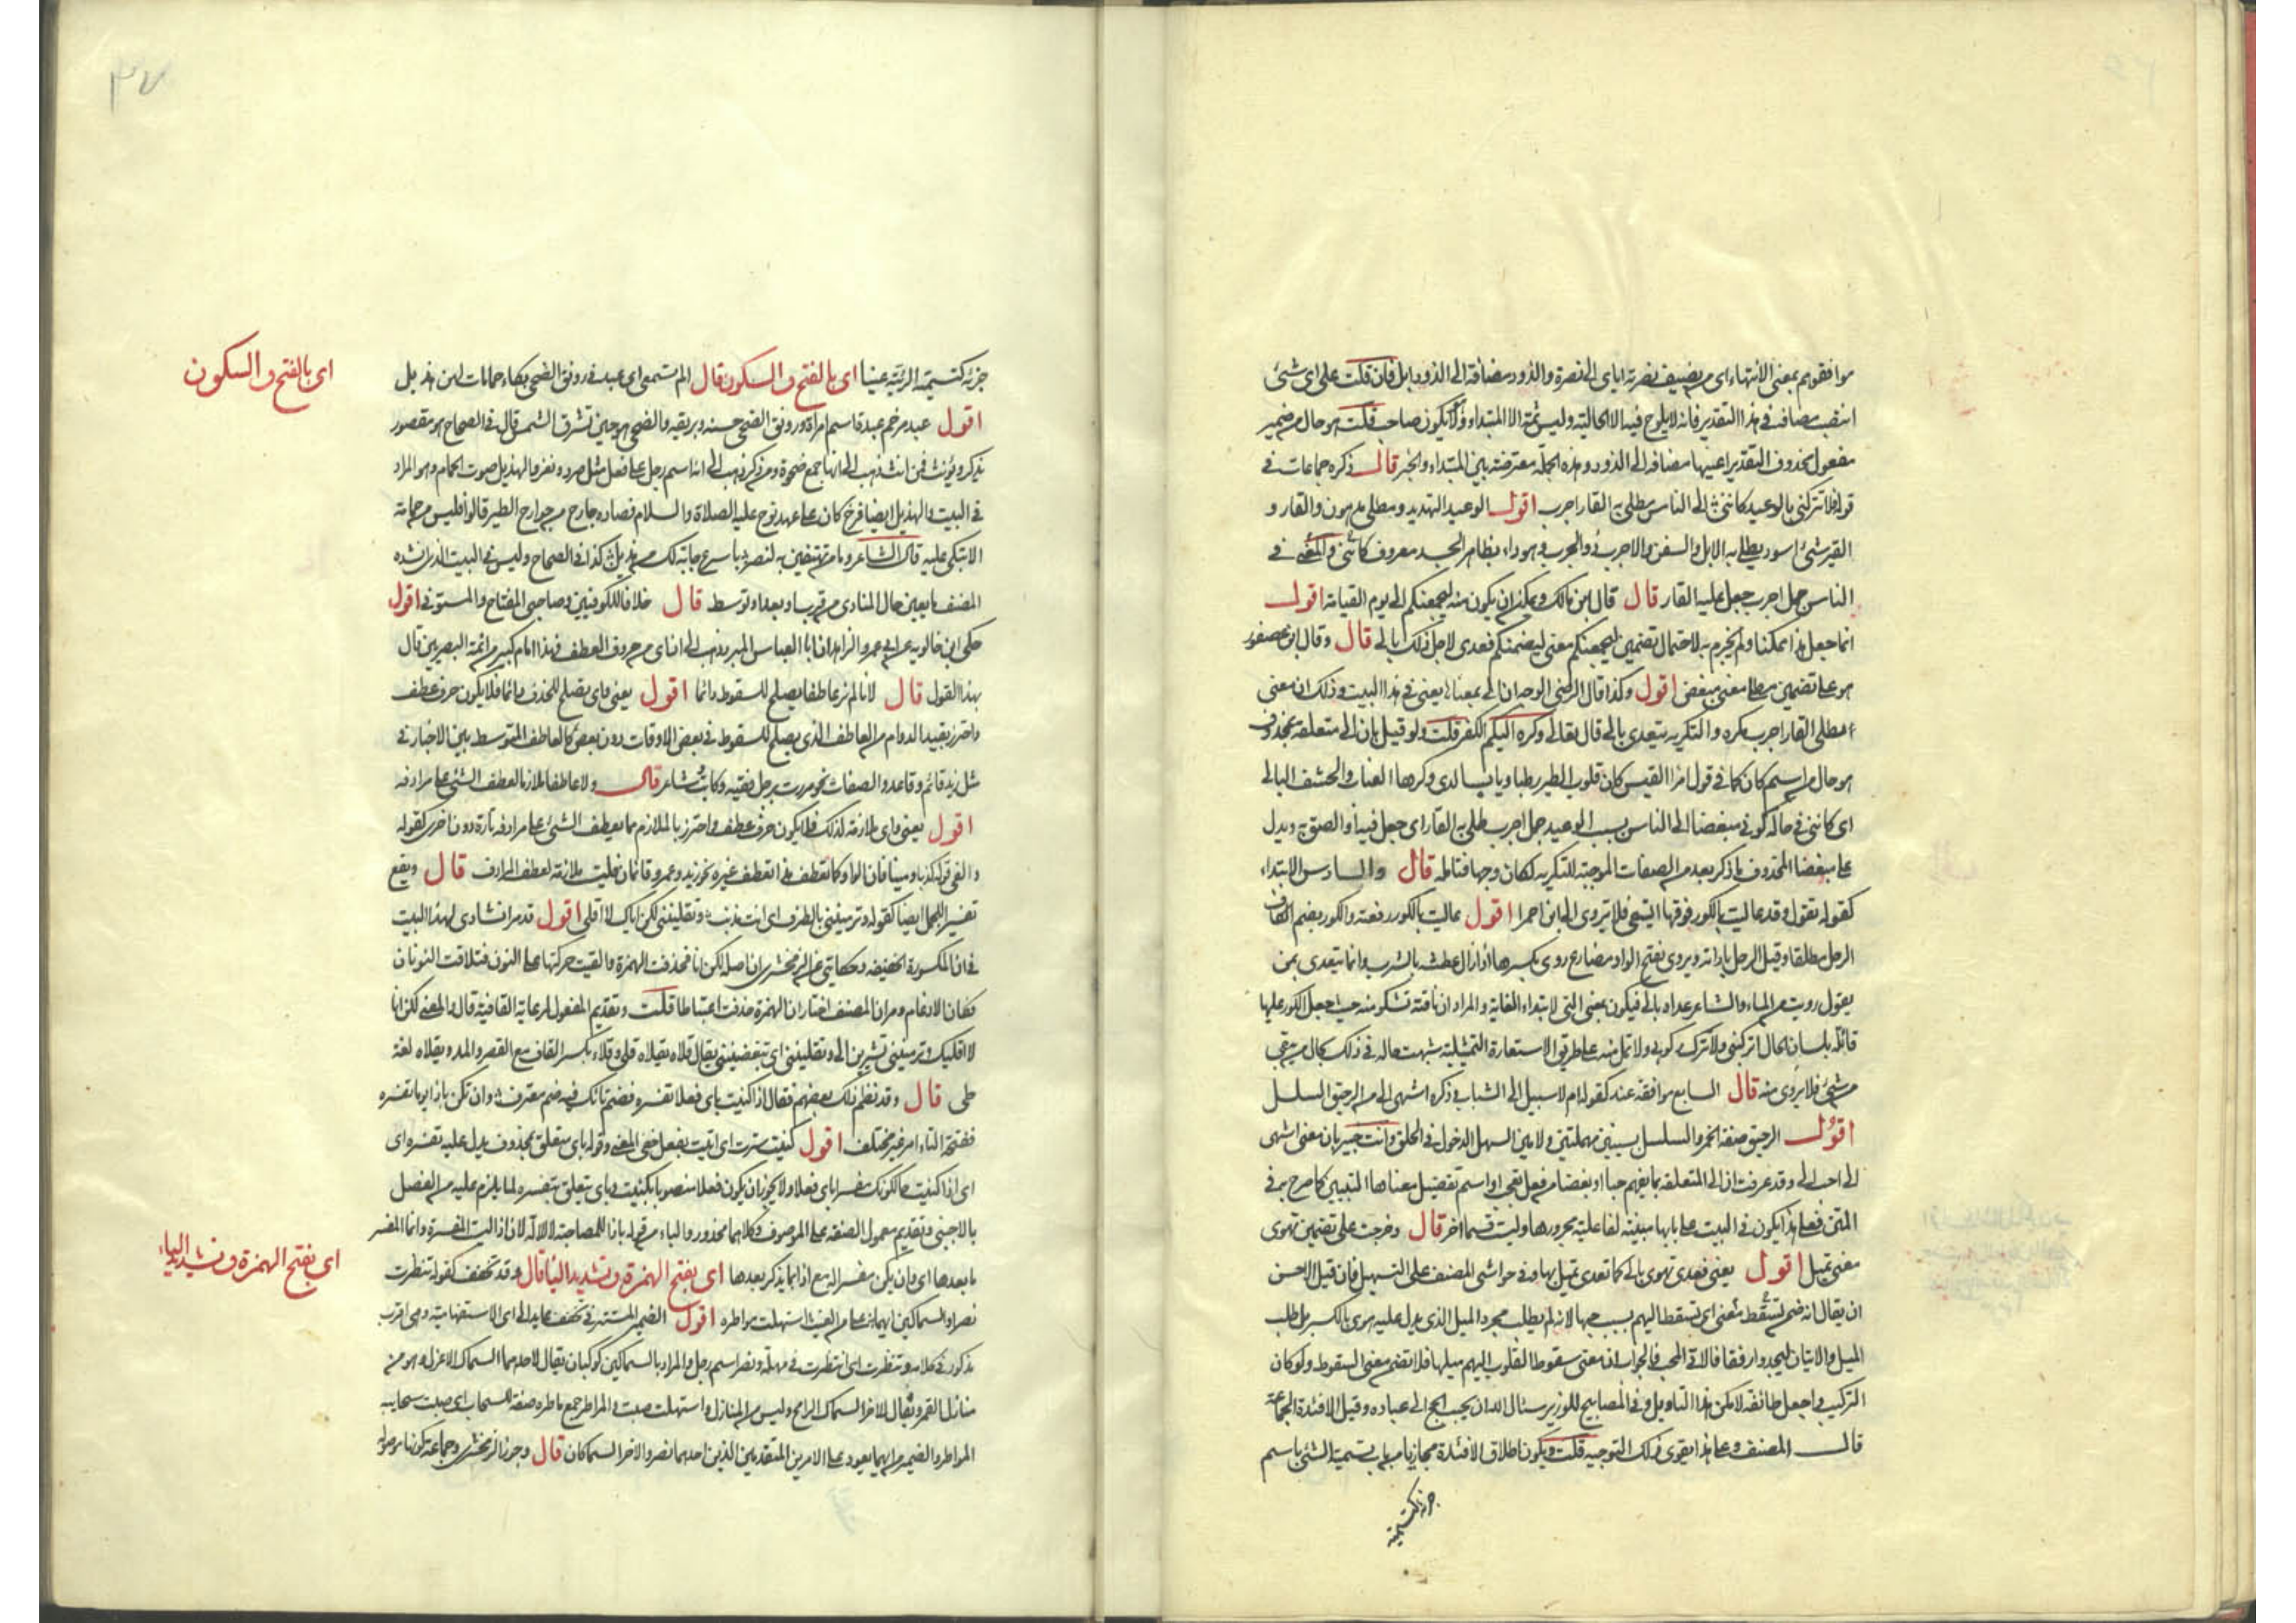 موافقوهم بمعنى الانتهاء اى من يضيف نصرته اياى الى نصرة والذود مضافة الى الذود ابل فان قلت على اى شئ
انتصب مضافة فى هذا التقدير فانه لا يلوح فيه الا الحالية وليس ثمة الا المبتداء ولا يكون صاحب قلت هو حال من ضمير
مفعول محذوف التقدير اعنيها مضافة الى الذود وهذه الجملة معترضة بين المبتداء والخبر قال ذكره جماعات فى
قوله فلا تتركنى بالوعيد كاننى الى الناس مطلى به القار اجرب اقول الوعيد التهديد ومطلى مدهون والقار و
القير شئ اسود يطلى به الابل والسفن والاجرب ذو الجرب وهو داء بظاهر الجلد معروف كاننى والمعنى فى
الناس جمل اجرب جعل عليه القار قال قال ابن مالك ويمكن ان يكون منه ليجمعنكم الى يوم القيامة اقول
انما جعل هذا ممكنا ولم يجزم به لاحتمال تضمين ليجمعنكم معنى ليضمنكم فعدى لاجل ذلك بالى قال وقال ابن عصفور
هو على تضمين مطلى معنى مبغض اقول وكذا قال الرضى الوجه ان الى بمعناها يعنى فى هذا البيت وذلك ان معنى
مطلى القار اجرب مكره والتكريه يتعدى بالى قال تعالى وكره اليكم الكفر قلت ولو قيل بان الى متعلقة بمحذوف
هو حال من اسم كان كما فى قول امرا القيس كان قلوب الطير رطبا ويابسا لدى وكرها العناب والحشف البالى
اى كاننى فى حالة كونى مبغضا الى الناس بسبب الوعيد جمل اجرب طلى به القار اى جعل فيه او الصق به ويدل
على مبغضا المحذوف ما ذكر بعد من الصفات الموجبة للتكريه لكان وجها فتامله قال والسادس الابتداء
كقوله تقول وقد عاليت بالكور فوقها ايسقى فلا يروى الى ابن احمرا اقول عاليت بالكور رفعته والكور بضم الكاف
الرحل مطلقا وقيل الرحل باداته ويروى بفتح الواو مضارع روى بكسرها اذا زال عطشه بالشرب وانما يتعدى بمن
يقول رويت من الماء والشاعر عداه بالى فيكون بمعنى التى لابتداء الغاية والمراد ان ناقته تشكو منه حيث جعل الكور عليها
قائلة بلسان الحال اتركنى ولا تترك ركوبى ولا تمل منه على طريق الاستعارة التمثيلية شبهت حاله فى ذلك بحال من يسقى
من شئ فلا يروى منه قال السابع موافقة عند كقوله ام لا سبيل الى الشباب وذكره اشهى الى من الرحيق السلسل
اقول الرحيق صفة الخمر والسلسل بسينين مهملتين ولامين السهل الدخول فى الحلق وانت خبير بان معنى اشهى
الى احب الى وقد عرفت ان الى المتعلقة بما يفهم حبا او بغضا من فعل تعجب او اسم تفضيل معناها التبيين كما صرح به فى
المتن فعلى هذا يكون فى البيت على بابها مبينة لفاعلية مجرورها وليست قسما اخر قال وخرجت على تضمين تهوى
معنى تميل اقول يعنى فعدى تهوى بالى كما تعدى تميل بها وفى حواشى المصنف على التسهيل فان قيل الاحسن
ان يقال انه ضمن لتسقط معنى اى تسقط اليهم بسبب حبها لانه لم يطلب مجرد الميل الذى يدل عليه هوى بالكسر بل طلب
الميل والاتيان ليجدوا رفقا فالجواب ان معنى سقوط القلوب اليهم ميلها فلا تضمن معنى السقوط ولو كان
التركيب واجعل طائفة لامكن هذا التاويل وفى المصابيح للوزير سئال الله ان يحبب الحج الى عباده وقيل الافئدة الجماعة
قال المصنف وعلى هذا يقوى ذلك التوجيه قلت ويكون اطلاق الافئدة مجازيا من باب تسمية الشئ باسم
جزئه كتسمية
٣٧
جزئه كتسمية الربيئة عينا اى بالفتح والسكون قال الم تسمعى اى عبد فى رونق الضحى بكاء حمامات لهن هديل
اقول عبد مرخم عبدة اسم امراة ورونق الضحى حسنه وبريقه والضحى هو حين تشرق الشمس قال فى الصحاح هو مقصور
يذكر ويؤنث فمن انث ذهب الى انها جمع ضحوة ومن ذكر ذهب الى انه اسم رجل على فعل مثل صرد ونغر والهديل صوت الحمام وهو المراد
فى البيت والهديل ايضا فرخ كان على عهد نوح عليه الصلاة والسلام فصاده جارح من جوارح الطير قالوا فليس من حمامة
الا تبكى عليه قال الشاعر وما من تهتفين به لنصر باسرع جابة لك من هديل كذا فى الصحاح وليس فى البيت الذى انشده
المصنف ما يعين حال المنادى من قرب او بعد او توسط قال خلافا للكوفيين وصاحبى المفتاح والمستوفى اقول
حكى ابن خالويه عن ابى عمرو الزاهد ان ابا العباس المبرد ذهب الى ان اى من حروف العطف فهذا امام كبير من ائمة البصريين قال
بهذا القول قال لانا لم نر عاطفا يصلح للسقوط دائما اقول يعنى واى يصلح للحذف دائما فلا يكون حرف عطف
واحترز بقيد الدوام من العاطف الذى يصلح للسقوط فى بعض الاوقات دون بعض كالعاطف المتوسط بين الاخبار فى
مثل زيد قائم وقاعد والصفات نحو مررت برجل فقيه وكاتب وشاعر قال ولا عاطفا ملازما لعطف الشئ على مرادفه
اقول يعنى واى ملازمة لذلك فلا يكون حرف عطف واحترز بالملازم مما يعطف الشئ على مرادفه تارة دون اخرى كقوله
والفى قولها كذبا ومينا فان الواو كما تعطف هذا تعطف غيره نحو زيد وعمرو قائمان فليست ملازمة لعطف المرادف قال ويقع
تفسيرا للجمل ايضا كقوله وترميننى بالطرف اى انت مذنب وتقليننى لكن اياك لا اقلى اقول قد مر انشادى لهذا البيت
فى ان المكسورة الخفيفة وحكايتى عن الزمخشرى ان اصله لكن انا فحذفت الهمزة والقيت حركتها على النون فتلاقت النونان
فكان الادغام ومر ان المصنف اختار ان الهمزة حذفت اعتباطا قلت وتقديم المفعول لرعاية القافية قال والمعنى لكن انا
لا اقليك وترميننى تشيرين الى وتقليننى اى تبغضيننى يقال قلاه يقلاه قلى وقلاء بكسر القاف مع القصر والمد ويقلاه لغة
طى قال وقد نظم ذلك بعضهم فقال اذا كنيت باى فعلا تفسره فضم تاءك فيه ضم معترف وان تكن باذا يوما تفسره
ففتحة التاء امر غير مختلف اقول كنيت سترت اى اتيت بفعل خفى المعنى وقوله باى متعلق بمحذوف يدل عليه تفسره اى
اى اذا كنيت حالكونك مفسرا باى فعلا ولا يجوز ان يكون فعلا منصوبا بكنيت وباى يتعلق بتفسره لما يلزم عليه من الفصل
بالاجنبى وتقديم معمول الصفة على الموصوف وكلاهما محذور والباء من قوله باذا للمصاحبة لا للالة لان اذا ليست المفسرة وانما المفسر
ما بعدها اى وان يكن مفسرا له مع اذا بما يذكر بعدها اى بفتح الهمزة وتشديد اليا قال وقد تخفف كقوله تنظرت
نصرا والسماكين ايهما على من الغيث استهلت مواطره اقول الضمير المستتر فى تخفف عايد الى اى الاستفهامية وهى اقرب
مذكور فى كلامه وتنظرت اى انتظرت فى مهلة ونصر اسم رجل والمراد بالسماكين كوكبان يقال لاحدهما السماك الاعزل وهو من
منازل القمر ويقال للاخر السماك الرامح وليس من المنازل واستهلت صبت والمواطر جمع ماطرة صفة للسحاب اى صبت سحايبه
المواطر والضمير من ايهما يعود على الامرين المتقدمين الذين احدهما نصر والاخر السماكان قال وجوز الزمخشرى وجماعة كونها موصولة
اى بالفتح والسكون
اى بفتح الهمزة وتشديد الياء